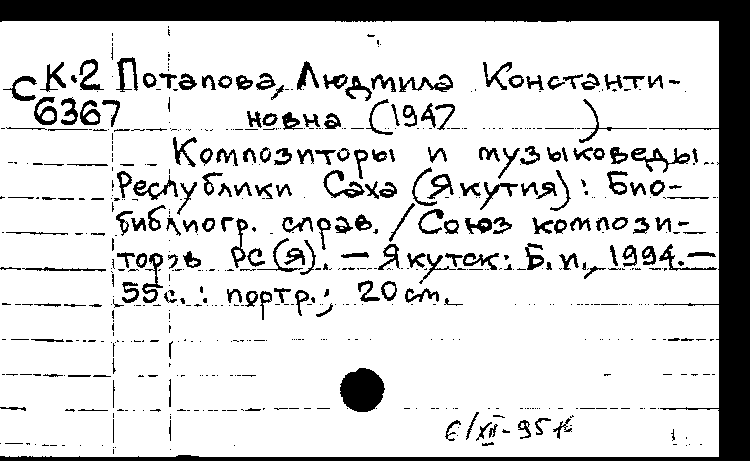 К-2 Потапова, Людмила Константи-
С 6367 новна (1947 ).
Композиторы и музыковеды
Республики Саха (Якутия) : Био-
библиогр. справ. / Союз компози-
торов РС (Я). — Якутск : Б. и., 1994. —
55 с. : портр. ; 20 см.
6/XII-95